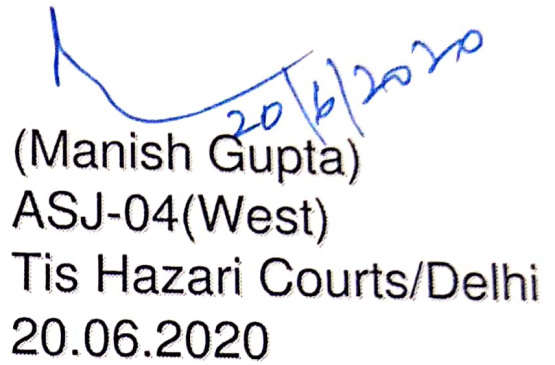 20/6/2020
(Manish Gupta)
ASJ-04(West)
Tis Hazari Courts/Delhi
20.06.2020